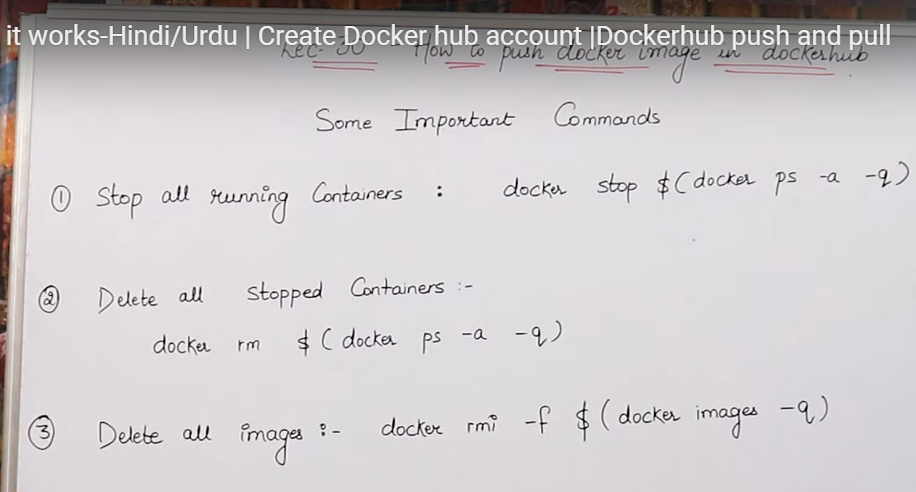 it works-Hindi/Urdu | Create Docker hub account |Dockerhub push and pull
Lec-30 - How to push docker image in dockerhub
Some Important Commands
① Stop all running Containers : docker stop $(docker ps -a -q)
② Delete all Stopped Containers :-
docker rm $(docker ps -a -q)
③ Delete all images :- docker rmi -f $(docker images -q)